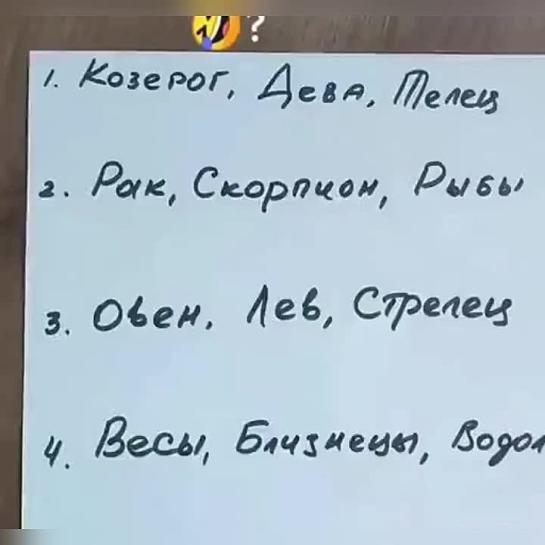 ?
1. Козерог, Дева, Телец
2. Рак, Скорпион, Рыбы
3. Овен, Лев, Стрелец
4. Весы, Близнецы, Водол